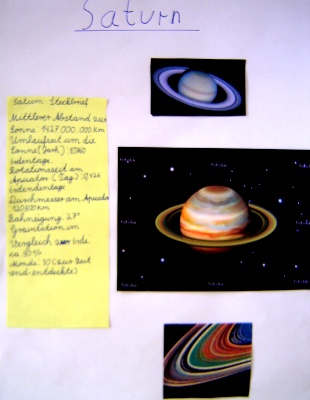 Saturn
Saturn Steckbrief
Mittlerer Abstand zur
Sonne: 1427.000.000 km
Umlaufzeit um die
Sonne (Jahr): 10760
Erdentage
Rotationszeit am
Äquator (Tag): 0,426
Erdentage
Durchmesser am Äquator
120800 km
Bahneigung: 2,5°
Gravitation im
Vergleich zur Erde:
ca. 93%
Monde: 30 (zur Zeit
end entdeckte)